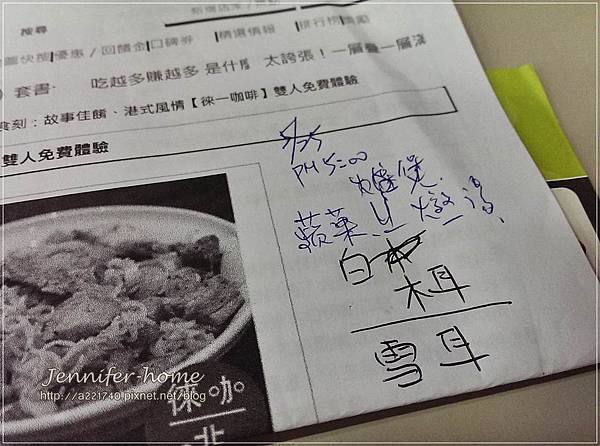 搜尋
優惠 / 回饋金 口碑券 精選情報 排行榜
套書· 吃越多賺越多 是什 太誇張！一層疊一層
食刻：故事佳餚、港式風情【徠一咖啡】雙人免費體驗
雙人免費體驗
PM 5:00
蘋菓 燉湯
白木
木耳
雪耳
徠 咖
啡
Jennifer-home
http://a221740.pixnet.net/blog